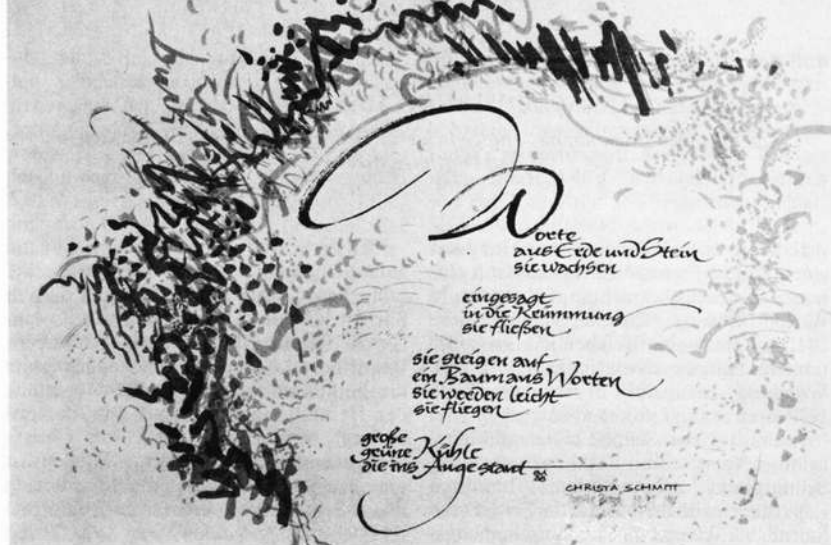 Worte
aus Erde und Stein
sie wachsen
eingesagt
in die Krümmung
sie fließen
sie steigen auf
ein Baum aus Worten
sie werden leicht
sie fliegen
große
grüne Kühle
die ins Auge staut
CHRISTA SCHMITT